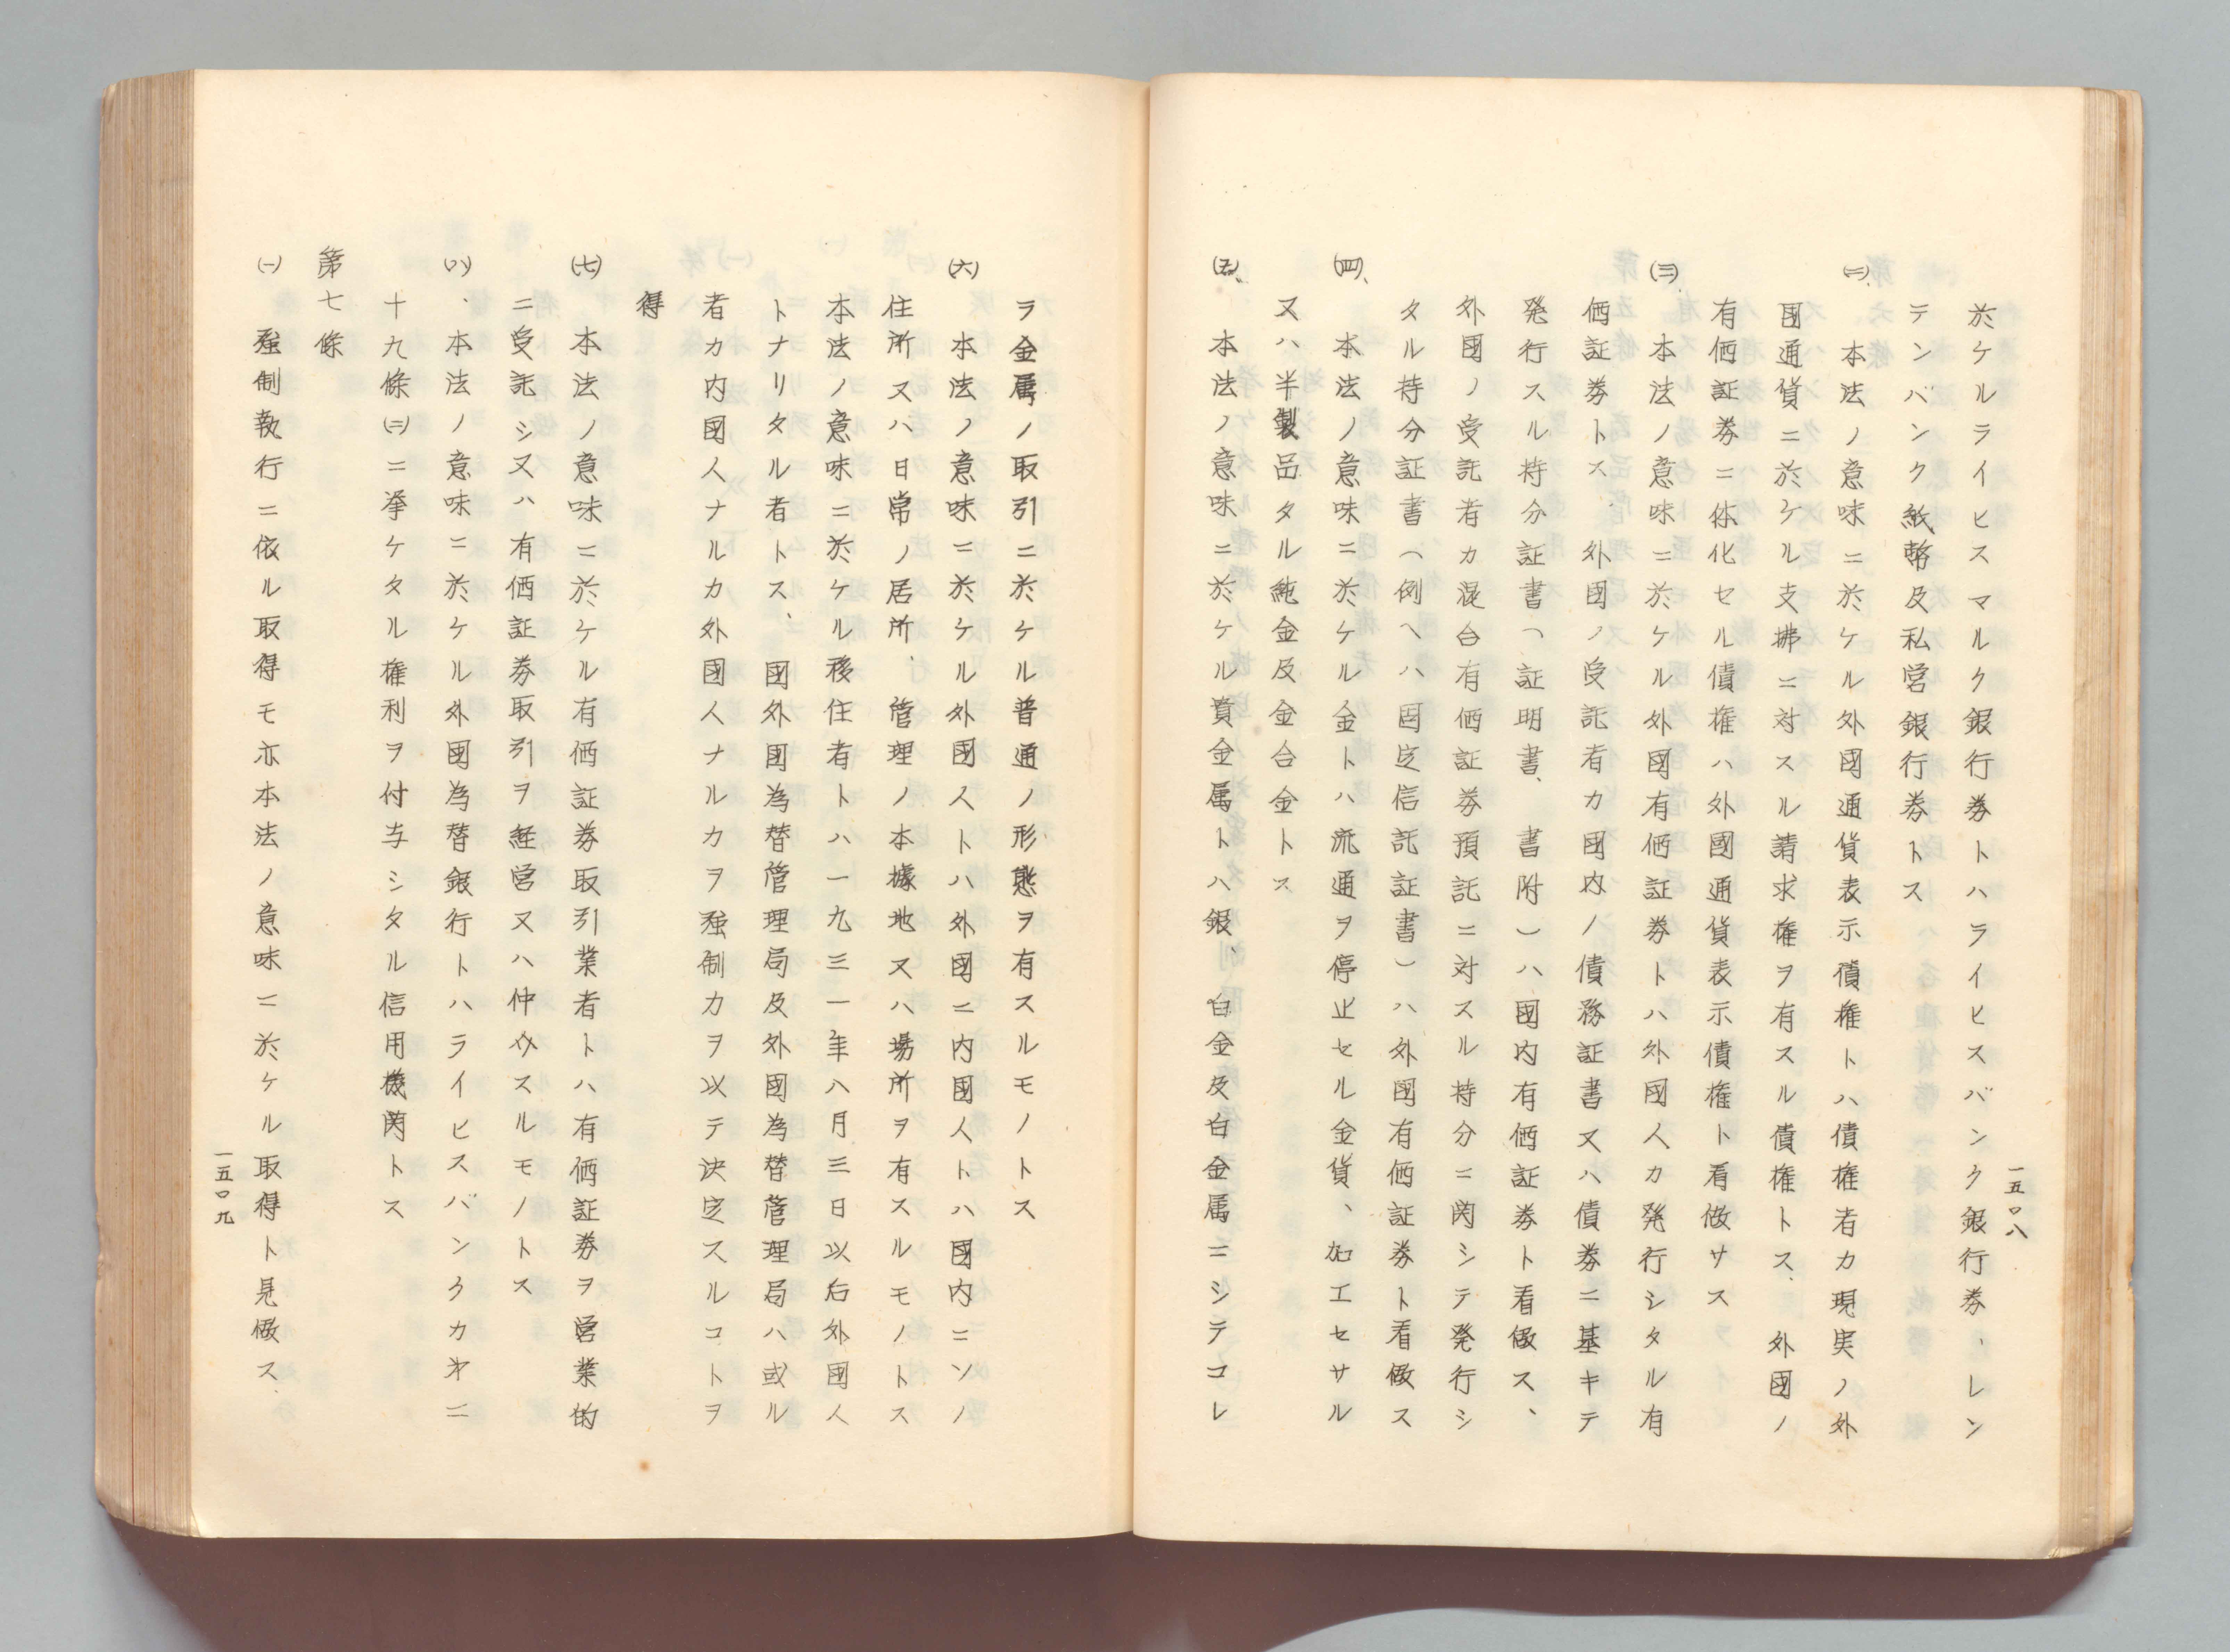 一五〇八
於ケルライヒスマルク銀行券トハライヒスバンク銀行券、レン
テンバンク紙幣及私営銀行券トス
㈡、本法ノ意味ニ於ケル外國通貨表示債権トハ債権者カ現実ノ外
國通貨ニ於ケル支拂ニ対スル請求権ヲ有スル債権トス、外國ノ
有価証券ニ体化セル債権ハ外國通貨表示債権ト看做サス
㈢、本法ノ意味ニ於ケル外國有価証券トハ外國人カ発行シタル有
価証券トス、外國ノ受託者カ國内ノ債務証書又ハ債券ニ基キテ
発行スル持分証書（証明書、書附）ハ國内有価証券ト看做ス、
外國ノ受託者カ混合有価証券預託ニ対スル持分ニ関シテ発行シ
タル持分証書（例ヘハ固定信託証書）ハ外國有価証券ト看做ス
㈣、本法ノ意味ニ於ケル金トハ流通ヲ停止セル金貨、加工セサル
又ハ半製品タル純金及金合金トス
㈤、本法ノ意味ニ於ケル貴金属トハ銀、白金及白金属ニシテコレ
ヲ金属ノ取引ニ於ケル普通ノ形態ヲ有スルモノトス
㈥本法ノ意味ニ於ケル外國人トハ外國ニ内國人トハ國内ニソノ
住所又ハ日常ノ居所、管理ノ本據地又ハ場所ヲ有スルモノトス
本法ノ意味ニ於ケル移住者トハ一九三一年八月三日以后外國人
トナリタル者トス、國外國為替管理局及外國為替管理局ハ或ル
者カ内國人ナルカ外國人ナルカヲ強制力ヲ以テ決定スルコトヲ
得
㈦本法ノ意味ニ於ケル有価証券取引業者トハ有価証券ヲ営業的
ニ受託シ又ハ有価証券取引ヲ経営又ハ仲介スルモノトス
㈧、本法ノ意味ニ於ケル外國為替銀行トハライヒスバンクカ第二
十九條㈡ニ挙ケタル権利ヲ付与シタル信用機関トス
第七條
㈠強制執行ニ依ル取得モ亦本法ノ意味ニ於ケル取得ト見做ス、
一五〇九